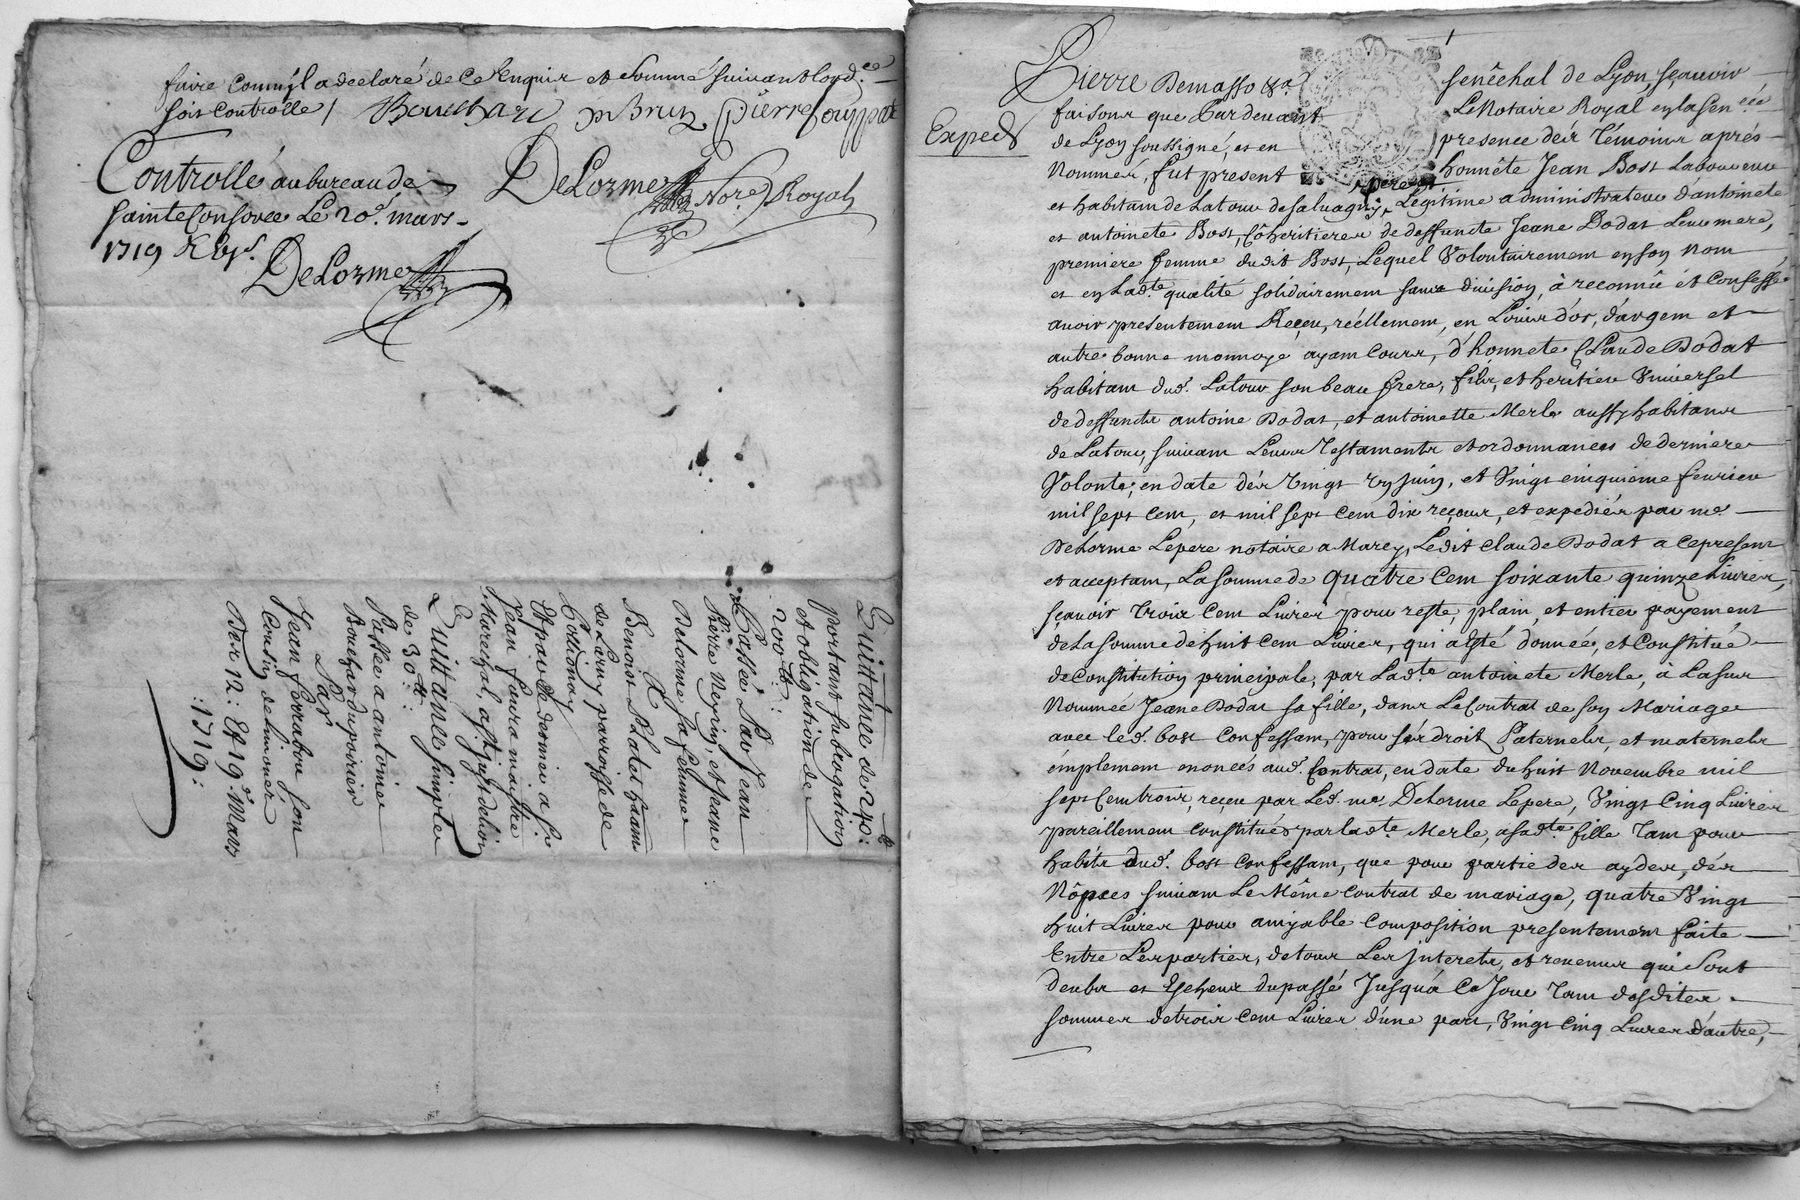 faire comme il a declaré de ce enquis et sommé suivant lord.ce
soit controlle /. Bouchard DeBrun pierre
Controllé au bureau de
sainte Consorce Le 20e. mars
1719 R
DeLorme Nore. Royal
DeLorme
Quittance de 240tt:
portant subrogation
et obligation de
200tt:
Passée Par Jean
Pierre Neyrin, et Jeane
Delorme sa femme
A
Benoist Platet habitant
de Larny parroisse de
Et par Le dernier a sr.
Jean faura maistre
Marechal, a st. just de lion
Quittance simple
de 30tt:
Passée a antoine
Bouchard
Par
Jean ferrabou son
Cousin de limonet
Des 12: Et 19e. Mars
:1719:
Pierre Demasso &a. senêchal de Lyon, sçavoir
faisons que Pardevant Le Notaire Royal en la sen.cée
Exped
de Lyon soussigné, et en presence des Témoins aprés
Nommés, fut present honnête Jean Bost Laboureur
et habitant de Latour de salvagny, pere et Légitime administrateur d'antoinete
et antoinete Bost, Côheritieres de deffuncte Jeane Dodat Leur mere,
premiere femme dudit Bost, Lequel Volontairement en son nom
et en Ladte. qualité solidairement sans division, à reconnû et Confessé
avoir presentement Reçeu, réellement, en Louis d'or, d'argent et
autre bonne monnoye ayant Cours, d'honnete Claude Dodat
habitant dud. Latour son beau frere, fils, et heritier Universel
de deffuncts antoine Dodat, et antoinette Merle aussy habitans
de Latour, suivant Leurs Testaments et ordonnances de derniere
Volonte, en date dés Vingt un juin, et Vingt cinquieme fevrier
mil sept cent, et mil sept cent dix reçeus, et expediés par me.
DeLorme Le pere notaire a Marcy, Ledit Claude Dodat a ce present
et acceptant, La somme de quatre cent soixante quinze Livres,
sçavoir trois cent Livres pour reste, plain, et entier payement
de La somme de huit cent Livres, qui a esté donnée, et Constitué
de Constitution principale, par Ladte. antoinete Merle, à Lasus
Nommée Jeane Dodat sa fille, dans Le Contrat de son Mariage
avec led. bost Confessant, pour sés droits Paternels, et maternels
emplement enoncés aud. Contrat, en date du huit Novembre mil
sept Cent trois, reçeu par Led. me. Delorme Le pere, Vingt Cinq Livres
pareillement Constitués par ladte. Merle, a sadte. fille tant pour
habits dud. bost Confessant, que pour partie des aydes, dés
Nôpces suivant Le Même Contrat de mariage, quatre Vingt
huit Livres pour amyable composition presentement faite
Entre Les parties, de tous Les jnterets, et revenus qui sont
deubs et Escheus du passé Jusquá Ce Jour tant desdites
sommes de trois cent Livres d'une part, Vingt Cinq Livres d'autre,